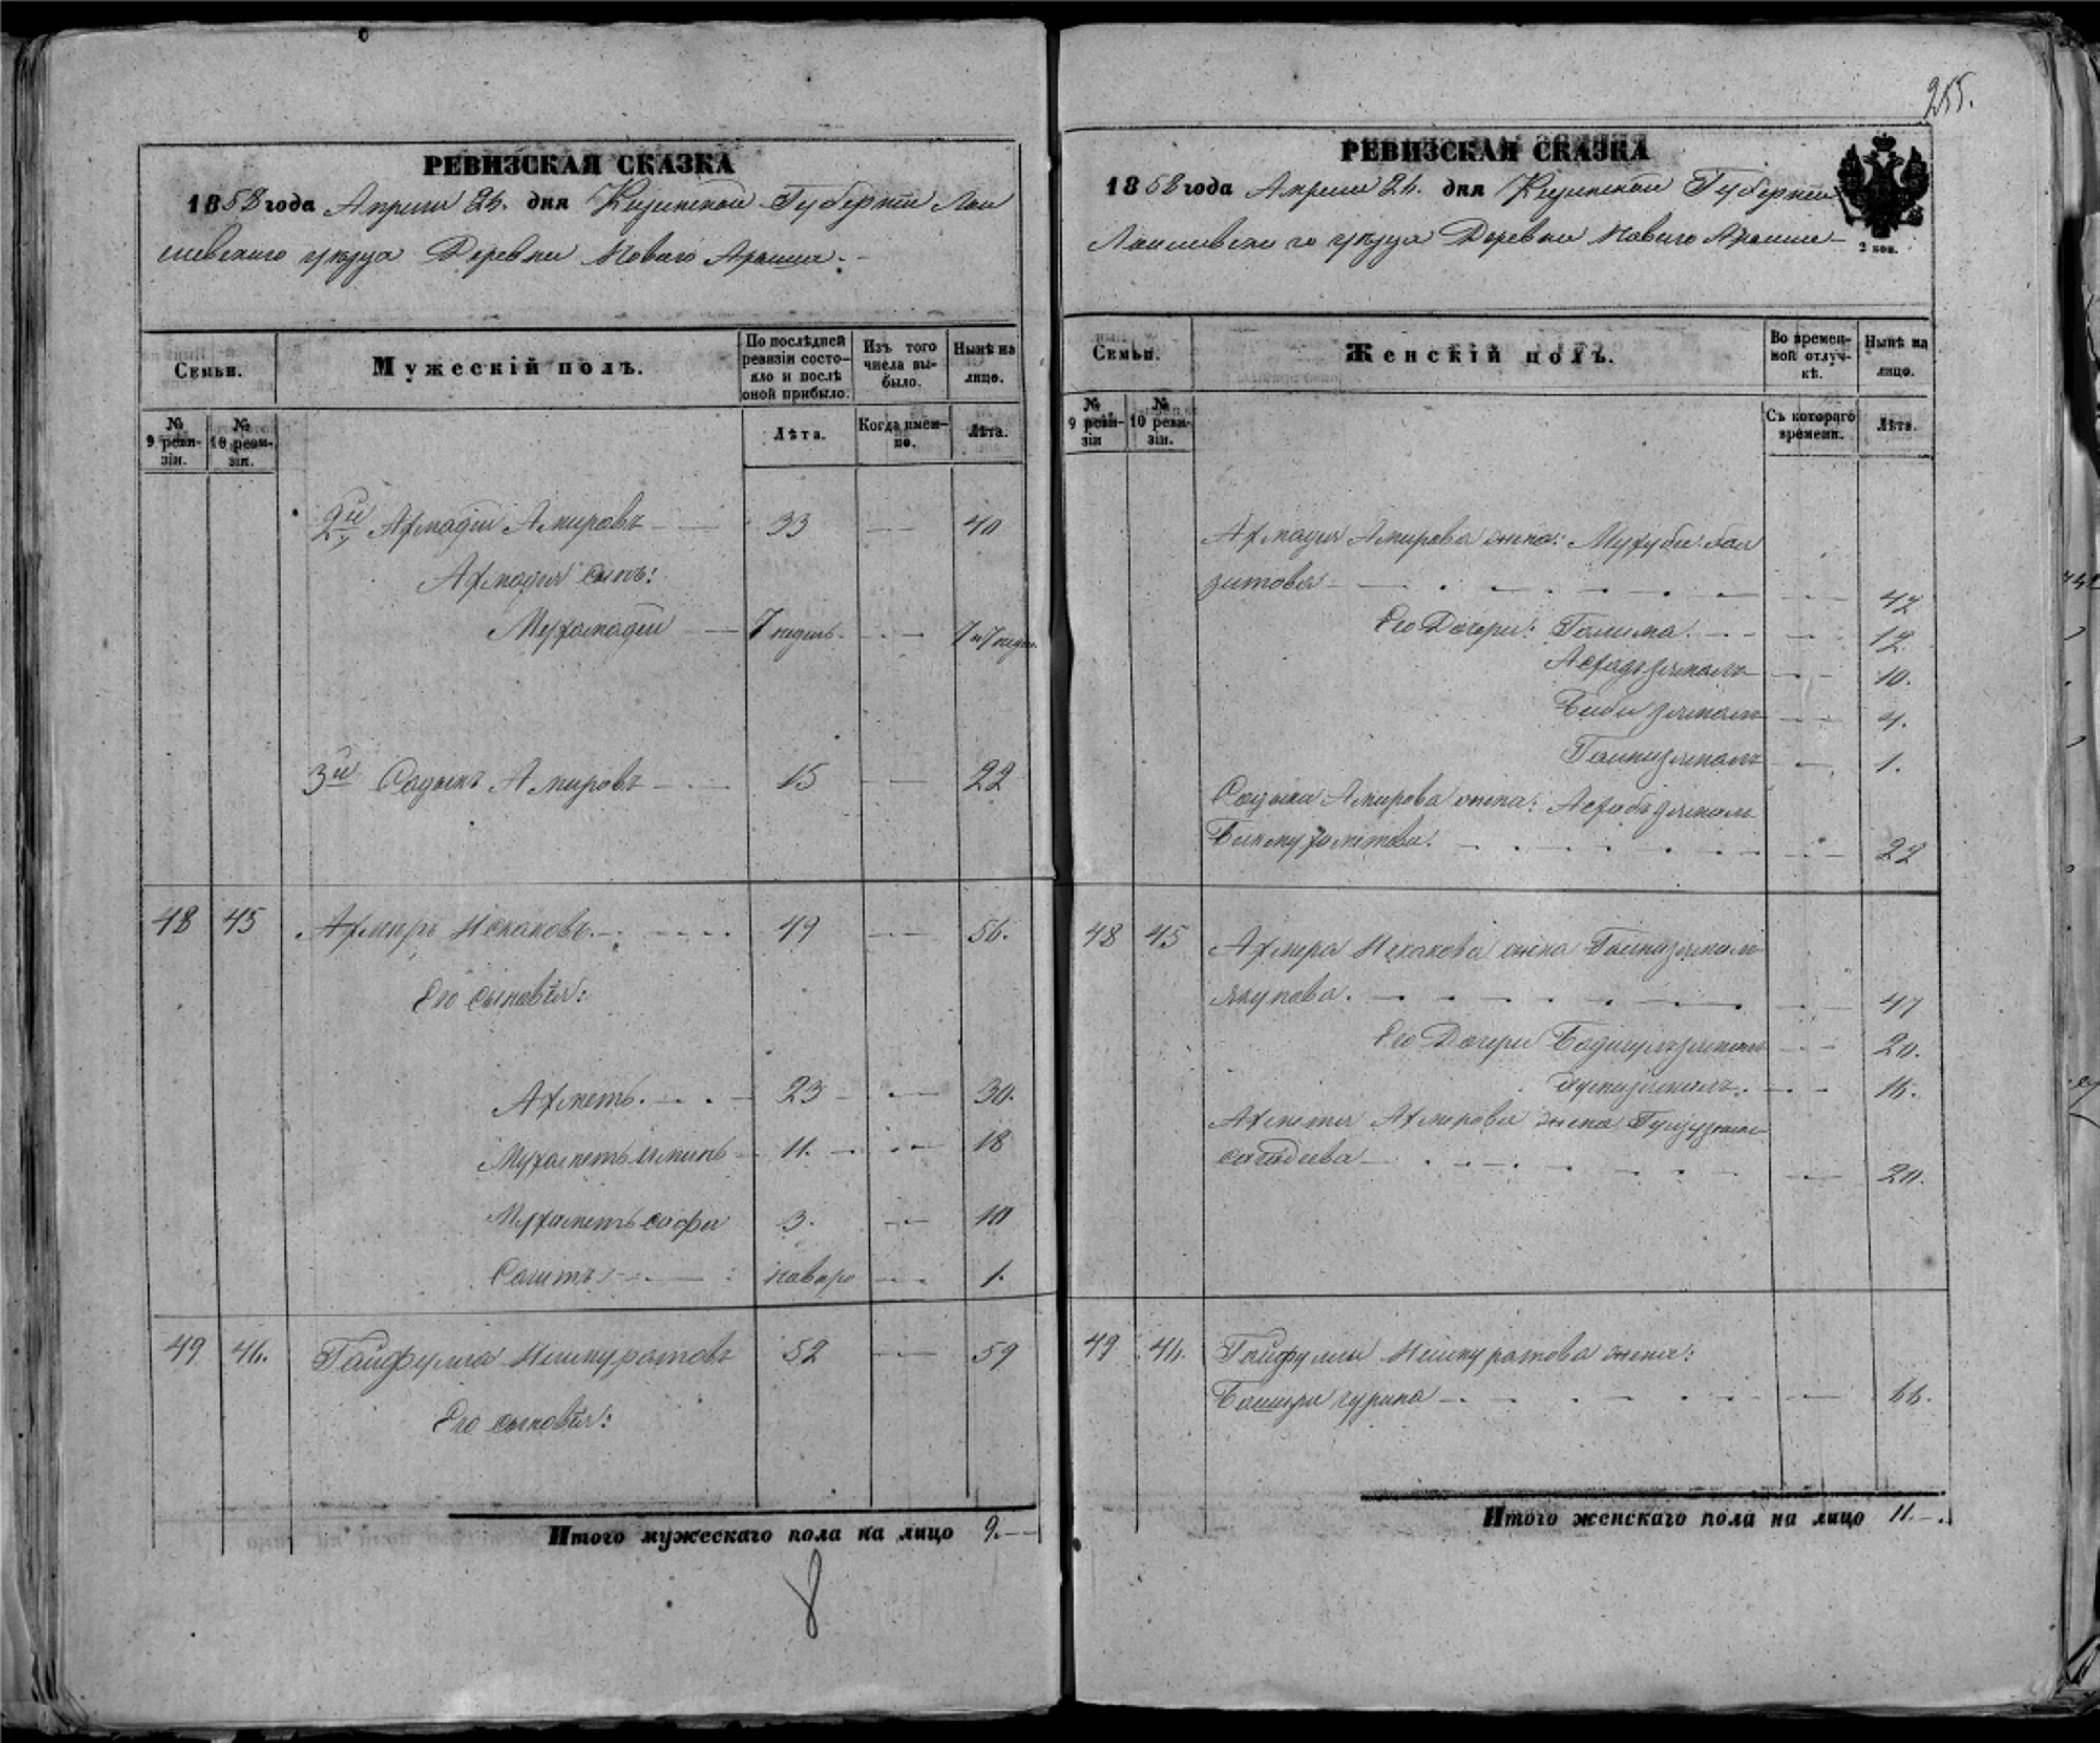 255.
РЕВИЗСКАЯ СКАЗКА
1858 года Апреля 24. дня Казанской Губерніи Лаи
шевскаго уѣзда Деревни Новаго Арыша.
Семьи.
Мужескій полъ.
По послѣдней ревизіи состояло и послѣ оной прибыло.
Изъ того числа выбыло.
Нынѣ на лицо.
№ 9 ревизіи.
№ 10 ревизіи.
Лѣта.
Когда именно.
Лѣта.
2й Ахмадій Амировъ 33 40
Ахмадія сынъ:
Мухамадій 7 недель 7 и 7 недел
3й Садыкъ Амировъ 15 22
48 45 Ахмиръ Искаковъ 49 56.
Его сыновья:
Ахметь 23 30.
Мухаметь Аминь 11. 18
Мухаметь сафа 3. 10
Саитъ 1.
49 46. Гайфулла Ишмуратовъ 52 59
Его сыновья:
Итого мужескаго пола на лицо 9.
8
РЕВИЗСКАЯ СКАЗКА
1858 года Апреля 24. дня Казанской Губерніи
Лаишевскаго уѣзда Деревни Новаго Арыша
2 коп.
Семьи.
Женскій полъ.
Во временной отлучкѣ.
Нынѣ на лицо.
№ 9 ревизіи
№ 10 ревизіи.
Съ котораго времени.
Лѣта.
Ахмадія Амирова жена: Баязитова 42
Его Дочери: Галима 12.
10.
Биби земалъ 4.
1.
Садыка Амирова жена:
Бикмухаметова. 22
48 45 Ахмера Искакова жена
Якупова. 47
Его Дочери 20.
16.
Ахметя Ахмерова жена
Сагадіева 20.
49 46. Гайфуллы Ишмуратова жена:
66.
Итого женскаго пола на лицо 11.